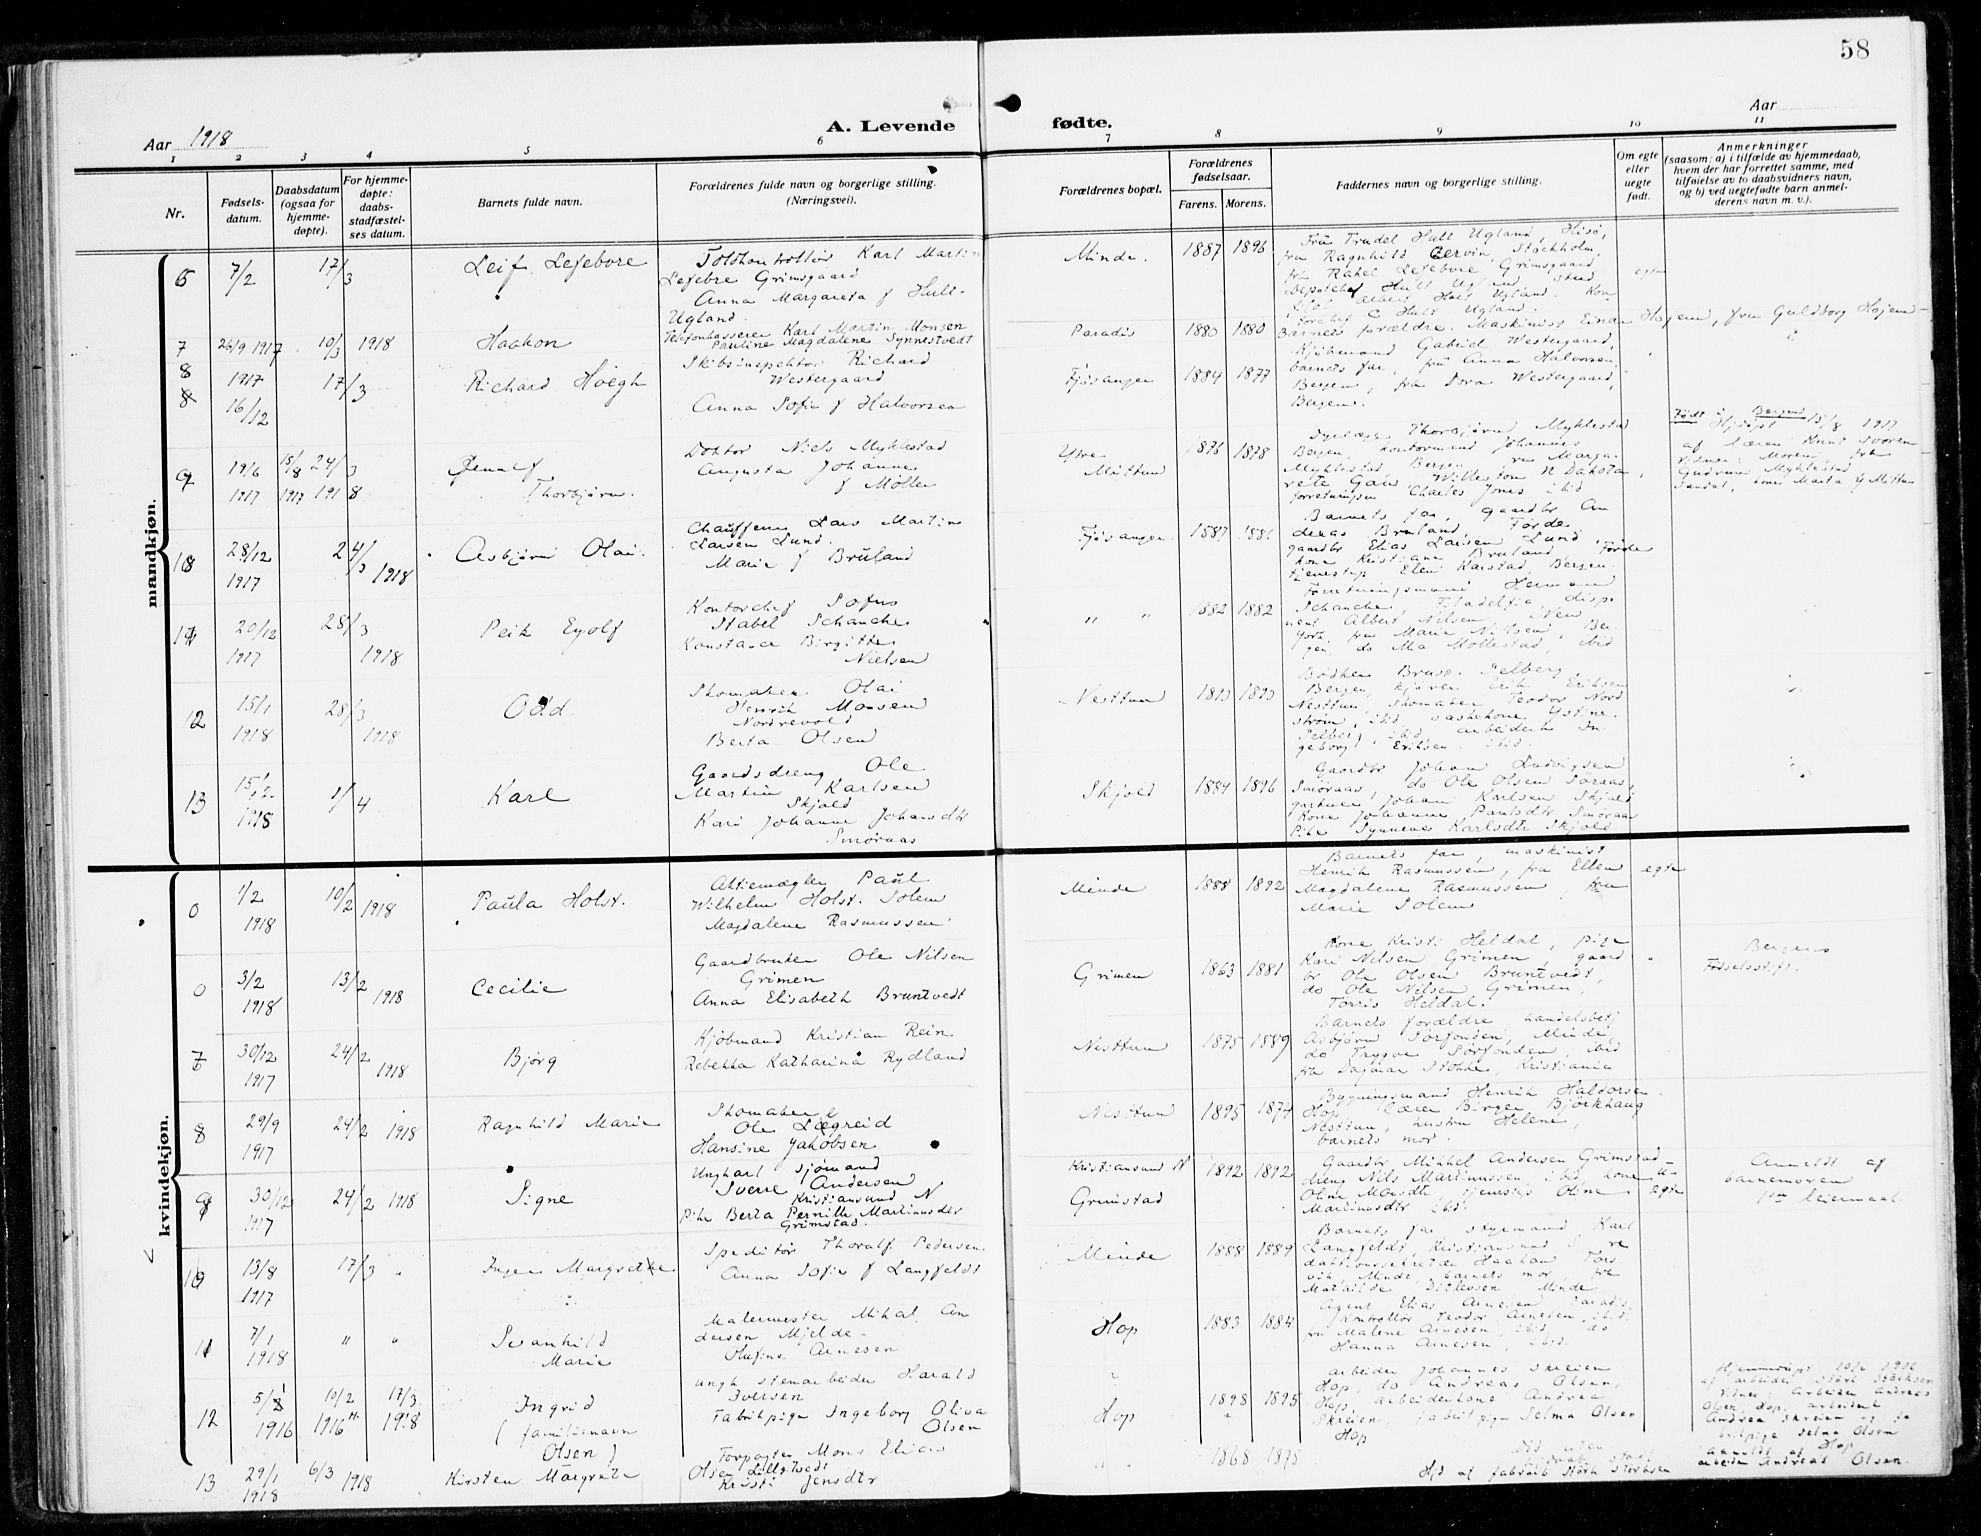 58
Aar 1918
A. Levende fødte.
Aar
1 2 3 4 5 6 7 8 9 10 11
Nr.
Fødsels-
datum.
Daabsdatum
(ogsaa for
hjemme-
døpte).
For hjemme-
døpte:
daabs-
stadfæstel-
ses datum.
Barnets fulde navn.
Forældrenes fulde navn og borgerlige stilling.
(Næringsvei).
Forældrenes bopæl.
Forældrenes
fødselsaar.
Farens. Morens.
Faddernes navn og borgerlige stilling.
Om egte
eller
uegte
født.
Anmerkninger
(saasom: a) i tilfælde av hjemmedaab,
hvem der har forrettet samme, med
tilføielse av to daabsvidners navn,
og b) ved uegtefødte barn anmel-
derens navn m. v.).
mandkjøn.
7/2 17/3 Leif Lefebvre
Karl Martin
Lefebre Grimsgaard
Anna Margareta f Hult-
Ugland.
Minde. 1887 1896
Fru Trudel Hult Ugland, Hisø,
fru Ragnhild Stockholm,
fru Rakel Lefebvre Grimsgaard,
Hult Ugland
Albert Hult Ugland.
C Hult Ugland.
egte
7 26/9 1917 10/3 1918 Haakon
Karl Martin Monsen
Pauline Magdalene Synnestvedt
Paradis 1880 1880
Barnets forældre. Maskinist Einar Højem, fru Guldborg Højem
8 1917 16/12 17/3 Richard Höegh
Skibsinspektør Richard
Westergaard
Anna Sofie f Halvorsen
Fjøsanger 1884 1877
Kjøbmand Gabriel Westergaard,
barnets far, fru Anna Halvorsen
Bergen, fru Dora Westergaard,
Bergen.
9 19/6 1917 15/8 1917 24/3 1918
Thorbjørn.
Doktor Niels Myklestad
Augusta Johanne
f Möller
Ytre
Mittun 1876 1878
Thorbjørn Myklestad
Bergen, kontormand Johannes
Myklestad, Bergen, Marga-
rete N Dakota,
Charles Jons ibid
Født i Bergen
15/8 1917
af lærer Knut
Gudrun Myklestad
10 28/12 1917 24/3 1918 Asbjørn Olai.
Chauffeur Lars Martin
Larsen Lund.
Marie f Bruland
Fjøsanger 1887 1886
Barnets far, gaardbr An
dreas Bruland, Førde,
gaardbr Elias Larsen Lund,
kone Kristiane Bruland, Førde
tjenestep Ellen Karstad, Bergen.
11 20/12 1917 28/3 1918 Peik Eyolf
Kontorchef Sofus
Stabel Schanche
Konstance Birgitte
Nielsen
" " 1882 1882
Forretningsmand Herman
Schanche, Filadelfia, dispo
nent Albert Nilsen, New
York, fru Marie Nilsen, Ber
gen, do Ma Mollestad, ibid
12 15/1 1918 28/3 1918 Odd.
Skomaker Olai
Henrik Monsen
Nordrevold
Berta Olsen
Nesttun
Bødker Selberg
Bergen, Erik Eriksen
Nesttun, skomaker Teodor Nord
strøm, ibid, vaskekone Ystine
Selberg, ibid, arbeidersk In
geborg Eriksen. ibid.
13 15/2 1918 1/4 Karl
Gaardsdreng Ole
Martin Karlsen
Skjold
Kari Johanne Johansdtr
Smøraas
Skjold 1884 1896
Gaardbr Johan Ludvigsen
Smøraas, do Ole Olsen Søraas,
gartner Johan Karlsen Skjold
kone Johanne Paulsdtr Smøraas
Pike Synneve Karlsdtr Skjold
kvindekjøn.
1/2 1918 10/2 1918 Paula Holst.
Aktiemægler Paul
Wilhelm Holst. Solem
Magdalene Rasmussen
Minde 1888 1892
Barnets far, maskinist
Henrik Rasmussen, fru Ellen
Magdalene Rasmussen, fru
Marie Solem
egte
3/2 1918 13/2 1918 Cecilie
Gaardbruker Ole Nilsen
Grimen
Anna Elisabeth Bruntvedt
Grimen 1863 1881
Kone Kristi Heldal, pige
Kari Nilsen Grimen, gaard
br Ole Olsen Bruntvedt,
do Ole Nilsen Grimen,
Torris Heldal.
Bergens
Fødselsstift.
7 30/12 1917 24/2 1918 Bjørg
Kjøbmand Kristian Rein
Rebekka Katharina Rydland
Nesttun 1875 1889
Barnets forældre, handelsbetj
Asbjørn Sørfonden, Minde
do Trygve Sørfonden, ibid
fru Dagmar Kristiania
8 29/9 1917 24/2 1918 Ragnhild Marie
Skomaker
Ole Lægreid
Hansine Jakobsen
Nesttun 1895 1874
Bygningsmand Henrik Haldorsen
Hop, lærer Birger Bjørkhaug
Nesttun, hustru Helene,
barnets mor.
9 30/12 1917 24/2 1918 Signe
Ungkarl sjømand
Sverre Andersen
Kristiansund N
Pike Berta Pernille Martinusdtr
Grimstad.
Kristiansund N
Grimstad 1892 1892
Gaardbr Mikkel Andersen Grimstad
dreng Nils Martinussen, ibid, kone
Oline Monsdtr, tjenestep Oline
Martinusdtr ibid.
uegte
Anmeldt af
barnemoren
1ste leiermaal.
10 13/8 1917 17/3 " Inger Margrethe
Speditør Thoralf Pedersen
Anna Sofie f Langfeldt
Minde 1888 1889
Barnets far styrmand Karl
Langfeldt, Kristiansund S re
daktionssekretær Haakon Tors
vik, Minde, barnets mor, frk
Mathilde Ditlefsen Minde
11 7/1 1918 " " Svanhild
Marie
Malermester Mikal An
dersen Mjelde
Olufine Arnesen
Hop 1883 1884
Agent Elias Arnesen Paradis
Kontrollør Teodor Arnesen, ibid,
fru Malene Arnesen, ibid, do
Hanna Arnesen, ibid.
12 5/1 1916 10/2 1916 17/3 1918 Ingrid
(familienavn
Olsen)
ungk stenarbeider Harald
Iversen
Fabrikpige Ingeborg Oliva
Olsen
"
Hop 1898 1895
arbeider Johannes Skreien
Hop, do Andreas Olsen,
Hop, arbeiderkone Andrea
Skreien, fabrikpige Selma Olsen
Hop
Hjemmedøpt 1916
af arbeider Størk Størksen
Vidner: Arbeider Andreas
Olsen, Hop, arbeiderk
Andrea Skreien og fa
brikpige Selma Olsen
Hop
anmeldt af
arbeider Andreas Olsen.
13 29/1 1918 6/3 1918 Kirsten Margrete
Forpagter Mons Elias
Olsen
Kristi Jensdtr
" . 1868 1875
Hjd af fabrikb Størk Størksen